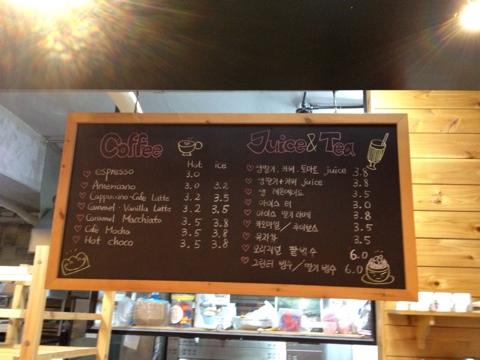 Coffee
Hot ice
espresso 3.0
Americano 3.0 3.2
Cappuccino·Cafe Latte 3.2 3.5
Caramel·Vanilla Latte 3.2 3.5
Caramel Macchiato 3.5 3.8
Cafe Mocha 3.5 3.8
Hot choco 3.5 3.8
Juice & Tea
생딸기·키위·토마토 juice 3.8
생딸기+키위 juice 3.8
생 레몬에이드 3.5
아이스 티 3.0
아이스 딸기라떼 3.8
캐모마일/루이보스 3.5
유자차 3.5
오리지널 팥빙수 6.0
그린티 빙수/딸기 빙수 6.0